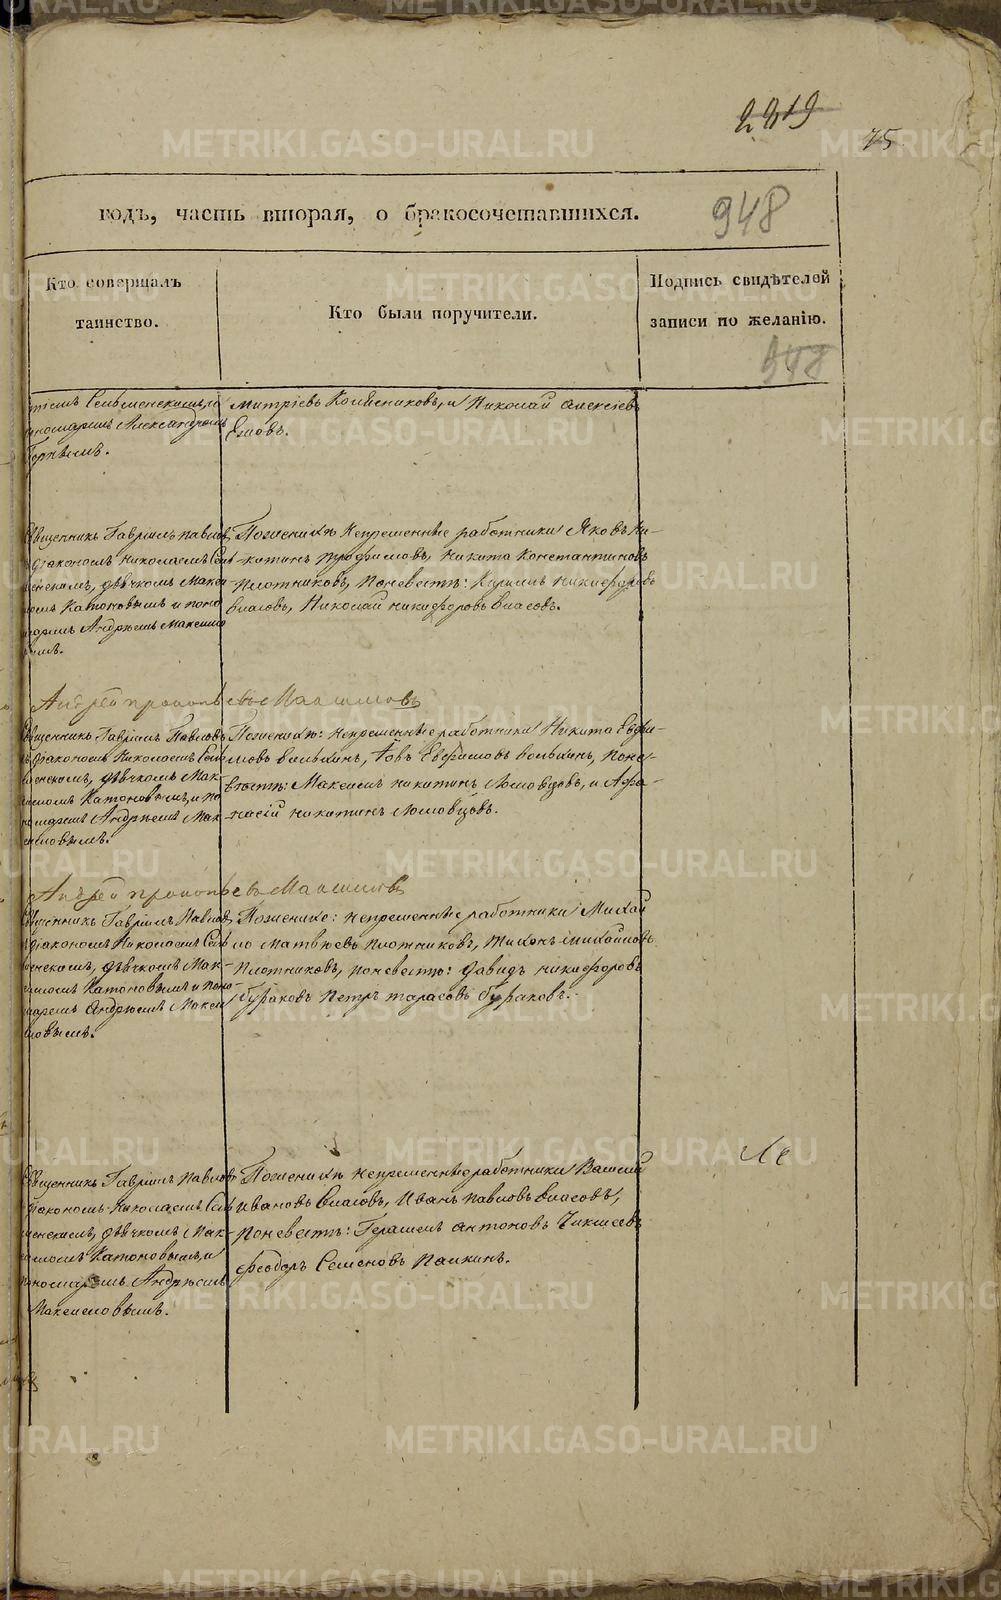 2219
75
годъ, часть вторая, о бракосочетавшихся.
948
Кто совершалъ
таинство.
Кто были поручители.
Подпись свидѣтелей
записи по желанію.
948
пономаремъ Александромъ
Митріевъ и Николай Алексіевъ
Священникъ Гавріилъ Павловъ
діакономъ Николаемъ
дьячкомъ Мак-
Катоновымъ и поно
маремъ Андреемъ Максимо
вымъ.
По женихѣ непременные работники Яковъ Ни-
китинъ Трофимовъ, Никита Константиновъ
Плотниковъ, по невестѣ: Никифоровъ
Власовъ, Николай Никифоровъ Власовъ.
Андрей Прокопьевъ
Священникъ Гавріилъ Павловъ
діакономъ Николаемъ
дьячкомъ Мак-
Катоновымъ, и по
номаремъ Андреемъ Мак-
симовымъ.
По женихѣ: непременные работники Никита Евфи-
мовъ Волькинъ, Іовъ Евфимовъ Волькинъ, по не-
вестѣ: Максимъ Никитинъ Ломовцовъ, и Афа-
насій Никитинъ Ломовцовъ.
Андрей Прокопьевъ
Священникъ Гавріилъ Павловъ
діакономъ Николаемъ
дьячкомъ Мак-
Катоновымъ и поно-
маремъ Андреемъ Макси
мовымъ.
По женихе: непременные работники Михай
ло Матвѣевъ Плотниковъ, Тихонъ Михайловъ
Плотниковъ, по невестѣ: Давидъ Никифоровъ
Бураковъ Петръ Тарасовъ Бураковъ.
Священникъ Гавріилъ Павловъ
діакономъ Николаемъ
дьячкомъ Мак-
Катоновымъ, и
пономаремъ Андреемъ
Максимовымъ.
По женихѣ непременные работники Василій
Ивановъ Власовъ, Иванъ Павловъ Власовъ,
по невестѣ: Герасимъ Антоновъ Чикшевъ
Феодоръ Семеновъ Палкинъ.
METRIKI.GASO-URAL.RU